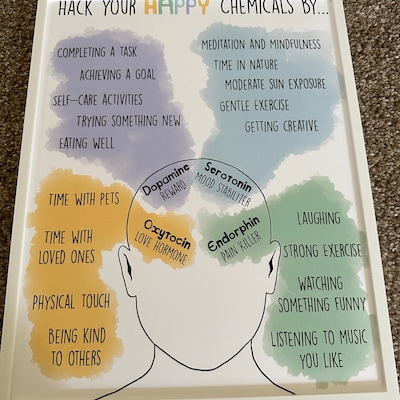 HACK YOUR HAPPY CHEMICALS BY...
COMPLETING A TASK
ACHIEVING A GOAL
SELF-CARE ACTIVITIES
TRYING SOMETHING NEW
EATING WELL
MEDITATION AND MINDFULNESS
TIME IN NATURE
MODERATE SUN EXPOSURE
GENTLE EXERCISE
GETTING CREATIVE
Dopamine
REWARD
Serotonin
MOOD STABILIZER
Oxytocin
LOVE HORMONE
Endorphin
PAIN KILLER
TIME WITH PETS
TIME WITH
LOVED ONES
PHYSICAL TOUCH
BEING KIND
TO OTHERS
LAUGHING
STRONG EXERCISE
WATCHING
SOMETHING FUNNY
LISTENING TO MUSIC
YOU LIKE